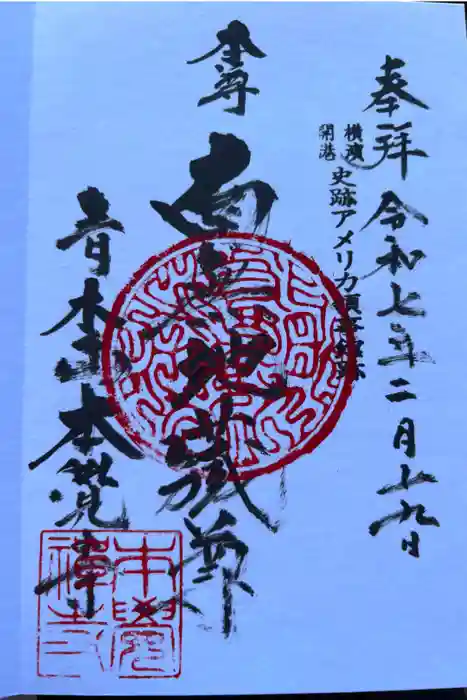 奉拝 令和七年二月十九日
横濱
開港
史跡アメリカ領事館跡
本尊
南無地蔵尊
青木山本覺寺
本覺
禅寺